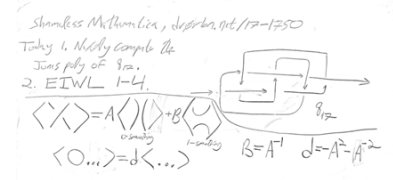 Shameless Mathematica, drorbn.net/17-1750
Today 1. Nicely compute the
Jones poly of 8₁₇.
2. EIWL 1-4.
8₁₇
⟨X⟩=A⟨)(⟩+B⟨≍⟩
0-smoothing 1-smoothing
⟨O...⟩=d⟨...⟩ B=A⁻¹ d=-A²-A⁻²